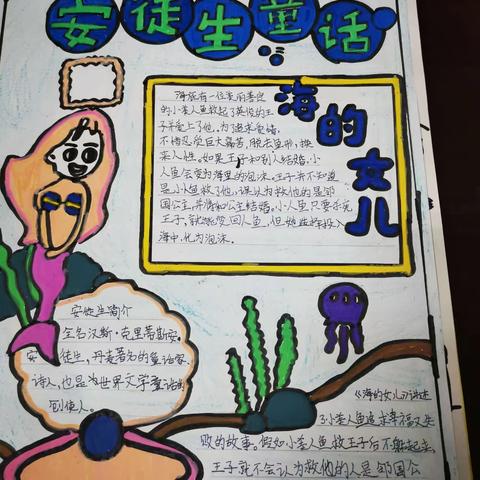 安徒生童话
海的女儿
海底有一位美丽善良
的小美人鱼救起了英俊的王
子并爱上了他,为了追求爱情,
不惜忍受巨大痛苦,脱去鱼形,换
来人性。如果王子和别人结婚,小
人鱼会变为海里的泡沫。王子并不知道
是小人鱼救了他,误认为救他的是邻
国公主,并将和公主结婚。小人鱼只要杀死
王子,就能变回人鱼,但她
海中,化为泡沫。
安徒生简介
全名汉斯·克里蒂斯安。
安徒生,丹麦著名的童话家、
诗人,也是为世界文学童话
创使人。
《海的女儿》讲述
了小美人鱼追求幸福又失
败的故事。假如小美人鱼救王子后不躲起来,
王子就不会认为救他的人是邻国公